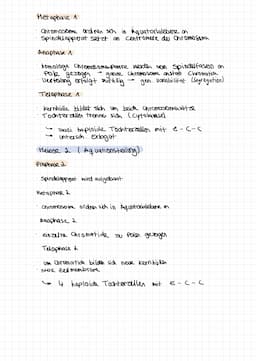 Metaphase 1
Chromosome ordnen sich in Äquatorialebene an
Spindelapparat setzt an Centromere der Chromosomen
Anaphase 1
homologe Chromosomenpaare werden von Spindelfasern an
Pole gezogen → ganze Chromosomen anstatt Chromatide
Verteilung erfolgt zufällig → gen. Variabilität (Segregation)
Telophase 1
Kernhülle bildet sich um beide Chromosomensätze
Tochterzellen trennen sich (Cytokinese)
↳ zwei haploide Tochterzellen mit 2-C-C
↳ untersch. Erbgut
Meiose 2 (Äquationsteilung)
Prophase 2
Spindelapparat wird aufgebaut
Metaphase 2
· Chromosome ordnen sich in Äquatorialebene an
Anaphase 2
· einzelne Chromatide zu Polen gezogen
Telophase 2
· um Chromatide bilden sich neue Kernhüllen
· neue Zellmembrane
↳ 4 haploide Tochterzellen mit 1-C-C